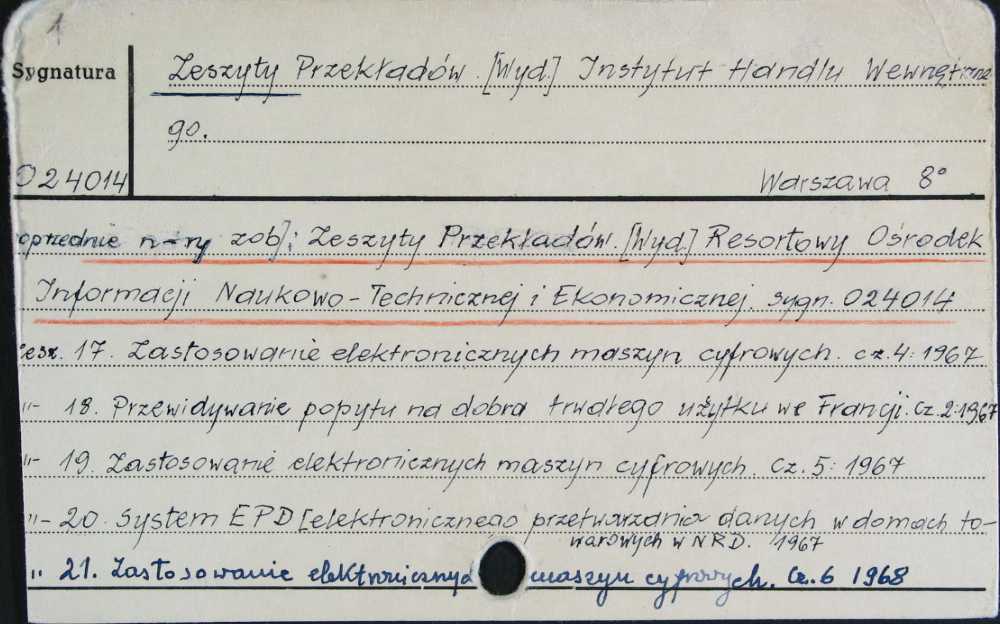 1
Sygnatura
Zeszyty Przekładów. [Wyd.] Instytut Handlu Wewnętrzne
go.
O24014
Warszawa 8°
oprzednie n-ry zob]: Zeszyty Przekładów. [Wyd.] Resortowy Ośrodek
Informacji Naukowo-Technicznej i Ekonomicznej. sygn. O24014
esz. 17. Zastosowanie elektronicznych maszyn cyfrowych. cz. 4: 1967
-"- 18. Przewidywanie popytu na dobra trwałego użytku we Francji. cz. 2: 1967
-"- 19. Zastosowanie elektronicznych maszyn cyfrowych. cz. 5: 1967
-"- 20. System EPD [elektronicznego przetwarzania danych w domach to-
warowych w NRD. 1967
" 21. Zastosowanie elektronicznych maszyn cyfrowych. Cz. 6 1968